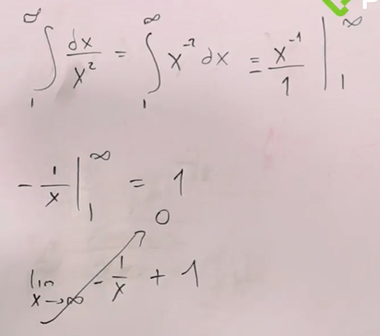 ∫₁^∞ dx/x² = ∫₁^∞ x⁻² dx = x⁻¹/1 |₁^∞
-1/x |₁^∞ = 1
0
lim x→∞ -1/x + 1